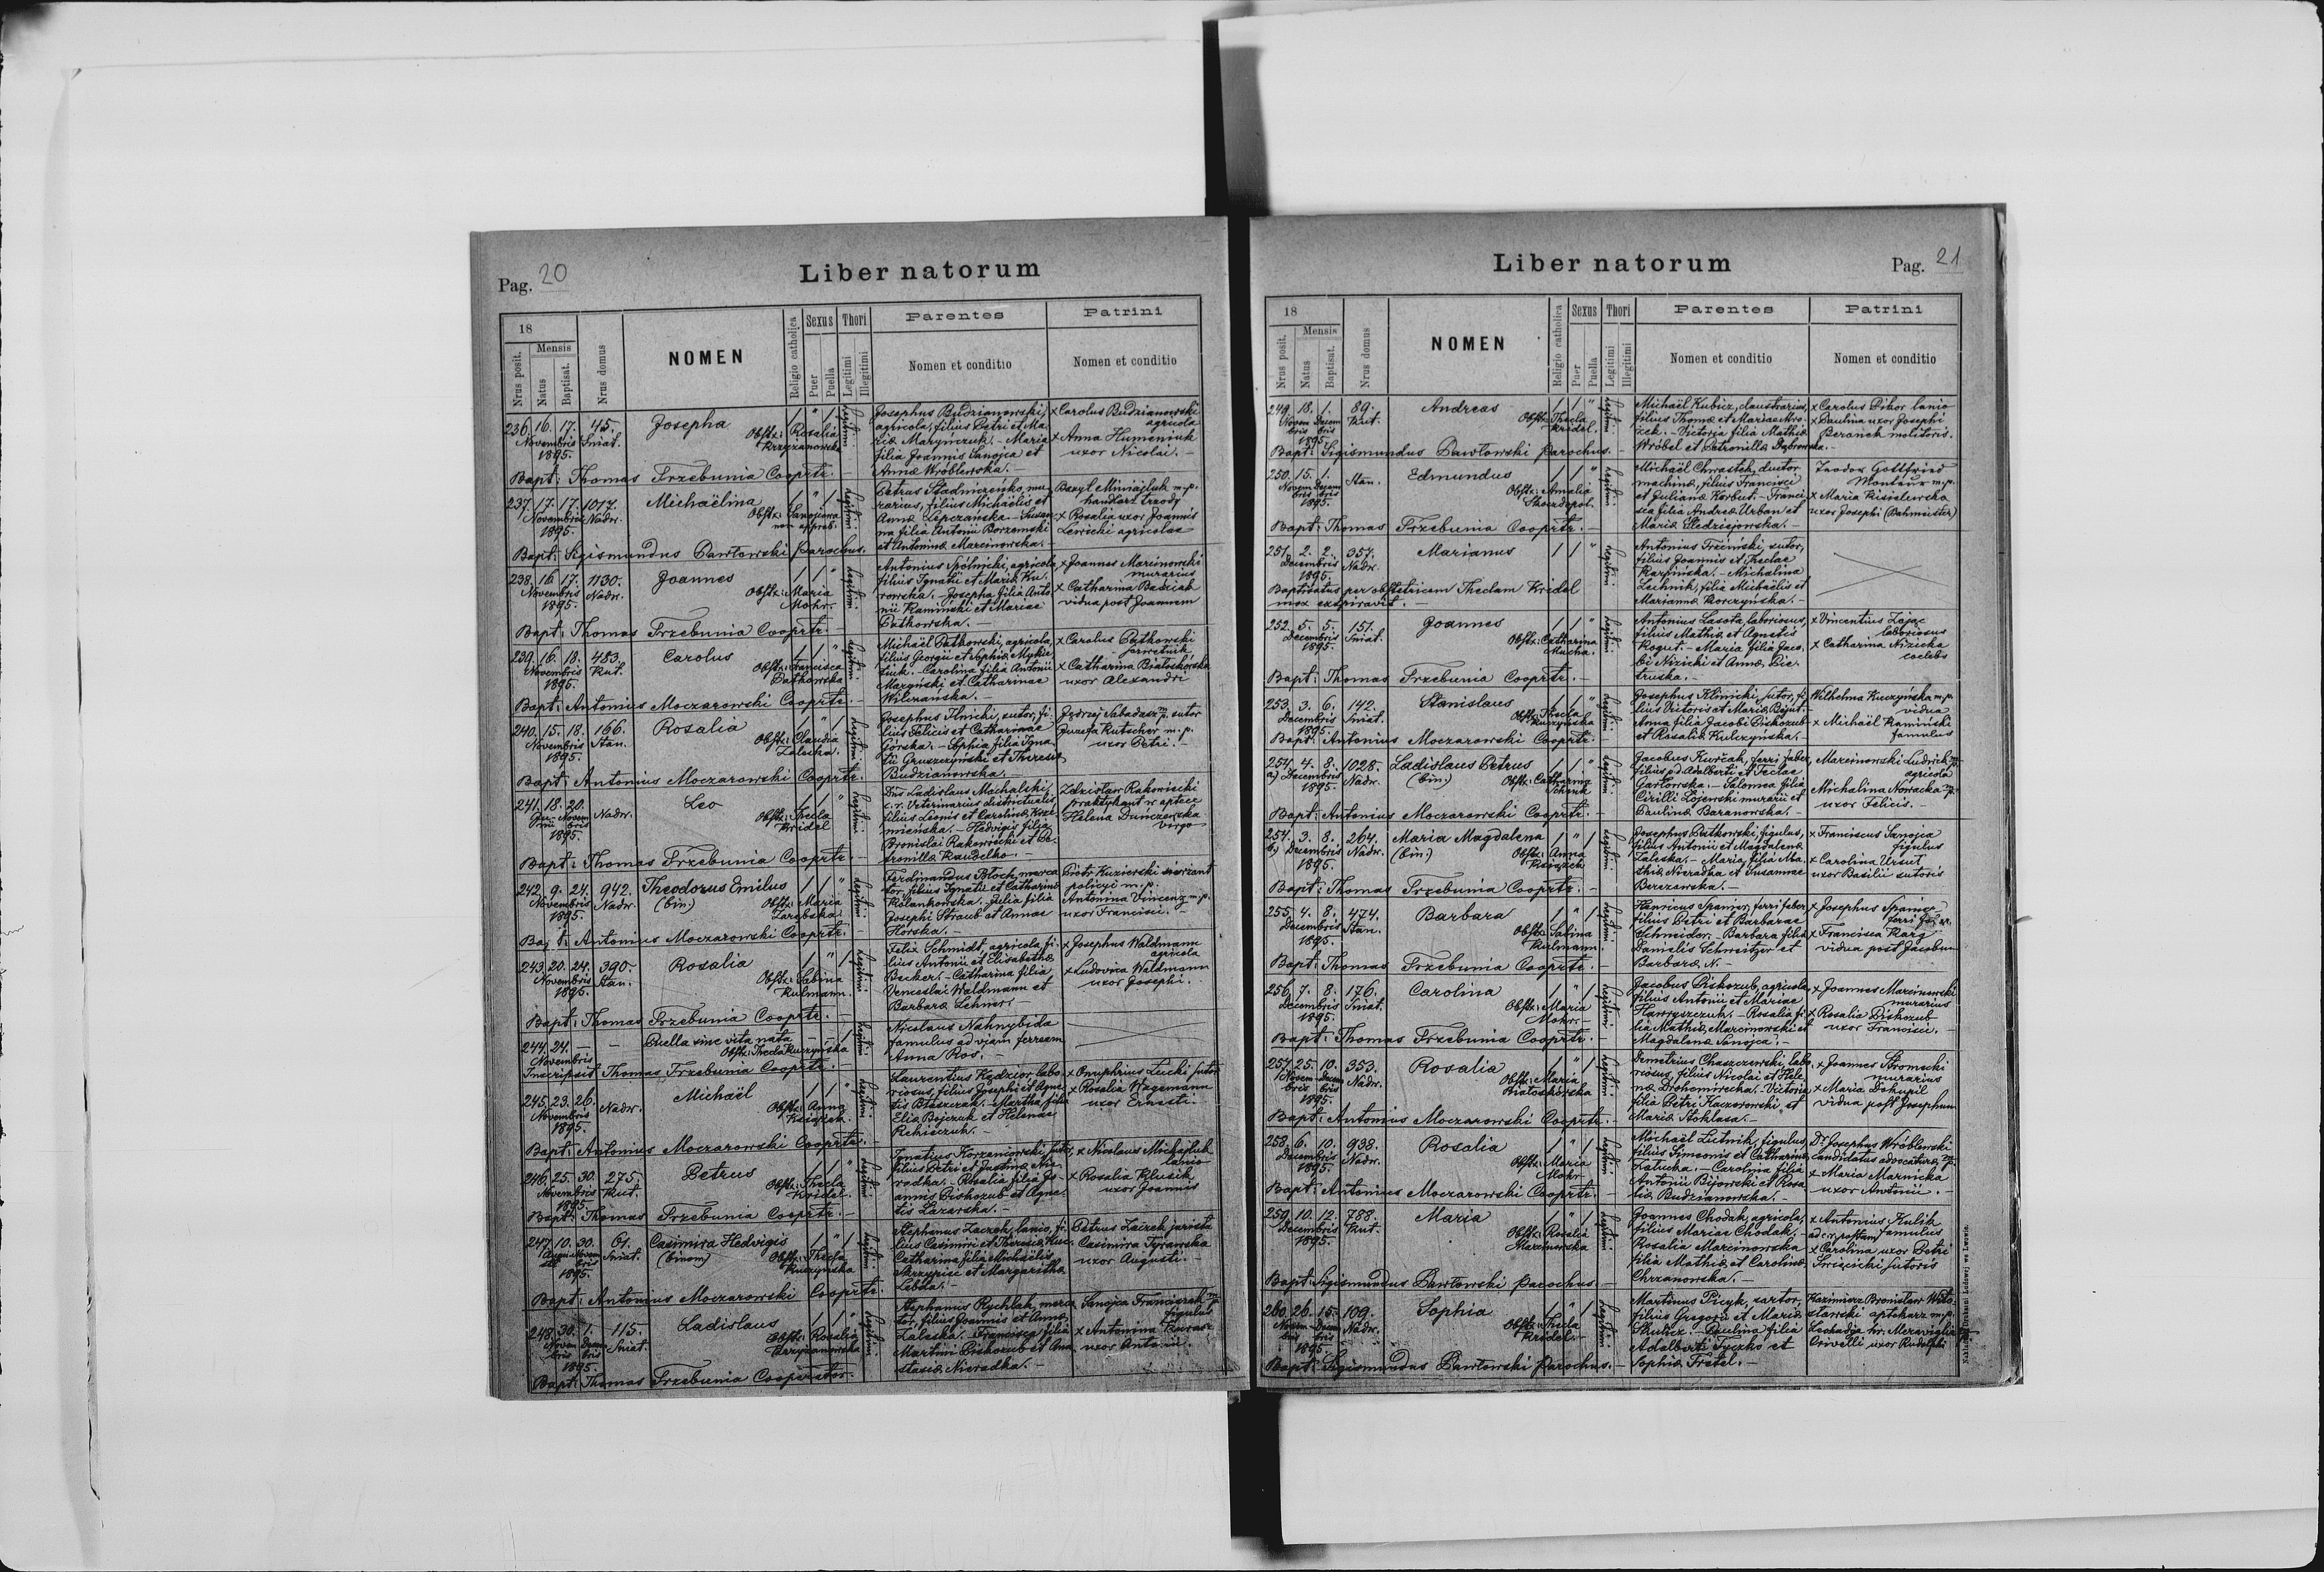 Pag. 20
Liber natorum
18
Mensis
Nrus posit.
Natus
Baptisat.
Nrus domus
NOMEN
Religio catholica
Sexus
Puer
Puella
Thori
Legitimi
Illegitimi
Parentes
Nomen et conditio
Patrini
Nomen et conditio
236. 16. 17. 45. Josepha
Novembris Sniat.
1895.
Obstx: Rosalia
Krzyżanowska
legitimi
Josephus Budzianowski,
agricola, filius Petri et Ma-
riæ Marynczuk. - Maria
filia Joannis Sanojca et
Annæ Wróblewska. -
x Carolus Budzianowski
agricola
x Anna Humeniuk
uxor Nicolai. -
Bapt: Thomas Trzebunia Cooprtr. -
237. 17. 17. 1077. Michaëlina
Novembris Nadw.
1895.
Obstx: Sanojcowa
non approb.
legitimi
Petrus Stadniczeńko, mu-
rarius, filius Michaëlis et
Annæ Lepczańska - Susan-
na filia Antonii Borzemski
et Antoninæ Marcinowska. -
Bazyl Miniajluk m.p.
handlarz trzody
x Rosalia uxor Joannis
Lewicki agricolae
Bapt: Sigismundus Pawłowski Parochus.
238. 16. 17. 1130. Joannes
Novembris Nadw.
1895.
Obstx: Maria
Mohr.
legitimi
Antonius Spólnicki, agricola,
filius Ignatii et Mariæ Ku-
rowska. - Josepha filia Anto-
nii Kamiński et Mariae
Patkowska. -
x Joannes Marcinowski
murarius
x Catharina Badiak
vidua post Joannem
Bapt: Thomas Trzebunia Cooprtr. -
239. 16. 18. 483. Carolus
Novembris Kut.
1895.
Obstx: Francisca
Patkowska
legitimi
Michaël Patkowski, agricola,
filius Georgii et Sophiæ Mykie-
tiuk. - Carolina, filia Antonii
Mazyński et Catharinae
Wilczańska. -
x Carolus Patkowski
x Catharina Białoskórska
uxor Alexandri
Bapt: Antonius Moczarowski Cooprtr. -
240. 15. 18. 166. Rosalia
Novembris Stan.
1895.
Obstx: Claudia
Zalucka.
legitimi
Josephus Ilnicki, sutor, fi-
lius Felicis et Catharinae
Górska. - Sophia filia Igna-
tii Gruszczyński et Theresiæ
Budzianowska. -
Jędrzej Sabadasz m.p. sutor
Józefa Kutscher m.p.
uxor Petri. -
Bapt: Antonius Moczarowski Cooprtr.
241. 18. 20. Nadw. Leo
Junii Novembris
1895.
Obstx: Thecla
Kridel
legitimi
Dns Ladislaus Machalski,
c.r. Veterinarius districtualis
filius Leonis et Carolinæ Krze-
mieńska. - Hedvigis filia
Bronislai Rakowiecki et Pe-
tronillæ Kaudelka. -
Zdzisław Rakowiecki
praktykant w aptece
Helena Dunczewska
virgo
Bapt: Thomas Trzebunia Cooprtr. -
242. 9. 24. 942. Theodorus Emilus
Novembris Nadw. (bin.)
1895.
Obstx: Maria
Zarębska
legitimi
Ferdinandus Bloch, merca-
tor, filius Ignatii et Catharinæ
Kolankowska. - Julia filia
Josephi Straub et Annae
Horska. -
Piotr Kuzierski sierżant
policyi m.p.
Antonina Vincenz m.p.
uxor Francisci. -
Bapt: Antonius Moczarowski Cooprtr.
243. 20. 24. 390. Rosalia
Novembris Stan.
1895.
Obstx: Sabina
Kulmann.
legitimi
Felix Schmidt, agricola, fi-
lius Antonii et Elisabethæ
Becker. - Catharina filia
Venceslai Waldmann et
Barbaræ Lehner. -
x Josephus Waldmann
agricola
x Ludovica Waldmann
uxor Josephi.
Bapt: Thomas Trzebunia Cooprtr. -
244. 24. - - Puella sine vita nata
Novembris
Obstx: Thecla Kuczyńska
legitimi
Nicolaus Nahnybida
famulus ad viam ferream
Anna Ros. -
Inscripsit Thomas Trzebunia Cooprtr. -
245. 23. 26. Nadw. Michaël
Novembris
1895.
Obstx: Anna
Książek.
legitimi
Laurentius Kędzior, labo-
riosus, filius Josephi et Agne-
tis Błaszczak. - Martha filia
Eliæ Bojczuk et Helenae
Rekiszczuk. -
x Onuphrius Lucki sutor
x Rosalia Wagemann
uxor Ernesti
Bapt: Antonius Moczarowski Cooprtr. -
246. 25. 30. 275. Petrus
Novembris Kut.
1895.
Obstx: Thecla
Kridel
legitimi
Ignatius Korzeniowski, sutor,
filius Petri et Justinæ Nie-
radka. - Rosalia filia Jo-
annis Piskozub et Agne-
tis Łazarska. -
x Nicolaus Michajluk
lanio
x Rosalia Klusik
uxor Joannis
Bapt: Thomas Trzebunia Cooprtr. -
247. 10. 30. 61. Casimira Hedvigis
Augusti Novembris Sniat. (binom)
1895.
Obstx: Thecla
Kuczyńska
legitimi
Stephanus Zaczek, lanio, fi-
lius Casimiri et Theresiæ Kuc.
Catharina filia Michaëlis
Skrzypiec et Margarithæ
Lebda. -
Petrus Zaczek jurista
Casimira Tyrawska
uxor Augusti. -
Bapt: Antonius Moczarowski Cooprtr.
248. 30. 1. 115. Ladislaus
Novembris Decembris Sniat.
1895.
Obstx: Rosalia
Krzyżanowska
legitimi
Stephanus Rychlak, merca-
tor, filius Joannis et Annæ
Zaleska. - Francisca filia
Martini Piskozub et Ana-
stasiæ Nieradka. -
Sanojca Franciszek m.p.
figulus
x Antonina
uxor Antonii. -
Bapt: Thomas Trzebunia Cooperator. -
Liber natorum
Pag. 21
18
Mensis
Nrus posit.
Natus
Baptisat.
Nrus domus
NOMEN
Religio catholica
Sexus
Puer
Puella
Thori
Legitimi
Illegitimi
Parentes
Nomen et conditio
Patrini
Nomen et conditio
249. 18. 1. 89. Andreas
Novembris Decembris Kut.
1895.
Obstx: Thecla
Kridel.
legitimi
Michaël Kubicz, claustrarius,
filius Thomæ et Mariae Mro-
zek. - Victoria filia Mathiæ
Wróbel et Petronillæ Dąbrowska. -
x Carolus Sikor lanio
x Paulina uxor Josephi
Beranek molitoris.
Bapt: Sigismundus Pawłowski Parochus. -
250. 15. 1. Stan. Edmundus
Novembris Decembris
1895.
Obstx: Amalia
Skoczdopol.
legitimi
Michaël Chwastek, ductor
machinæ, filius Francisci
et Julianæ Korbut. - Franci-
sca filia Andreæ Urban et
Mariæ Śledziejowska. -
Teodor Gottfried
Monteur m.p.
x Maria Kisielewska
uxor Josephi (Bahnmeister)
Bapt: Thomas Trzebunia Cooprtr. -
251. 2. 2. 357. Marianus
Decembris Nadw.
1895.
legitimi
Antonius Trzciński, sutor,
filius Joannis et Theclae
Karpińska. - Michalina
Lechnik, filia Michaëlis et
Mariannæ Korczyńska. -
Baptisatus per obstetricem Theclam Kridel
mox exspiravit. -
252. 5. 5. 151. Joannes
Decembris Sniat.
1895.
Obstx: Catharina
Mucha.
legitimi
Antonius Lasota, laboriosus,
filius Mathiæ et Agnetis
Kogut. - Maria filia Jaco-
bi Nizicki et Annæ Pie-
truska. -
x Vincentius Zając
laboriosus
x Catharina Nizicka
coelebs
Bapt: Thomas Trzebunia Cooprtr. -
253. 3. 6. 142. Stanislaus
Decembris Sniat.
1895.
Obstx: Thecla
Kuczyńska
legitimi
Josephus Klinicki, sutor, fi-
lius Victoris et Mariæ Bigut.
Anna filia Jacobi Piskozub
et Rosaliæ Kulczyńska. -
Wilhelma Kuczyńska m.p.
vidua
x Michaël Kamiński
famulus
Bapt: Antonius Moczarowski Cooprtr.
254. 4. 8. 1028. Ladislaus Petrus
a) Decembris Nadw. (bin.)
1895.
Obstx: Catharina
legitimi
Jacobus Kurčak, ferri faber,
filius Adalberti et Teclae
Gawłowska. - Salomea filia
Cirilli Łojewski murarii et
Paulinæ Baranowska. -
Marcinowski Ludwik m.p.
agricola
Michalina Nowacka m.p.
uxor Felicis. -
Bapt: Antonius Moczarowski Cooprtr. -
254. 3. 8. 264. Maria Magdalena
b) Decembris Nadw. (bin.)
1895.
Obstx: Anna
Książek
legitimi
Josephus Patkowski, figulus,
filius Antonii et Magdalenæ
Zaleska. - Maria filia Ma-
thiæ Nieradka et Susannae
Berezowska. -
x Franciscus Sanojca
figulus
x Carolina Ursut
uxor Basilii sutoris
Bapt: Thomas Trzebunia Cooprtr. -
255. 4. 8. 474. Barbara
Decembris Stan.
1895.
Obstx: Sabina
Kulmann.
legitimi
Henricus Spanier, ferri faber,
filius Petri et Barbarae
Schneider. - Barbara filia
Danielis Schweitzer et
Barbaræ N. -
x Josephus Spanier
ferri faber.
x Francisca Karg
vidua post Jacobum
Bapt: Thomas Trzebunia Cooprtr. -
256. 7. 8. 176. Carolina
Decembris Sniat.
1895.
Obstx: Maria
Mohr. -
legitimi
Jacobus Piskozub, agricola,
filius Antonii et Mariae
Hawryszczuk. - Rosalia fi-
lia Mathiæ Marcinowski et
Magdalenæ Sanojca. -
x Joannes Marcinowski
murarius
x Rosalia Piskozub
uxor Francisci. -
Bapt: Thomas Trzebunia Cooprtr. -
257. 25. 10. 353. Rosalia
Novembris Decembris Nadw.
1895.
Obstx: Maria
Białoskórska
legitimi
Demetrius Chaszczewski, labo-
riosus, filius Nicolai et Hele-
næ Drohomirecka. - Victoria
filia Petri Kaczorowski et
Mariæ Stokłasa. -
x Joannes Stromecki
murarius
x Maria Dokupil
vidua post Josephum
Bapt: Antonius Moczarowski Cooprtr. -
258. 6. 10. 938. Rosalia
Decembris Nadw.
1895.
Obstx: Maria
Mohr
legitimi
Michaël Lutnik, figulus,
filius Simeonis et Catharinæ
Załucka. - Carolina filia
Antonii Bijowski et Rosa-
liæ Budzianowska. -
Dr. Josephus Wróblewski
candidatus advocaturæ m.p.
x Maria Marnicka
uxor Antonii. -
Bapt: Antonius Moczarowski Cooprtr. -
259. 10. 12. 788. Maria
Decembris Kut.
1895.
Obstx: Rosalia
Marcinowska
legitimi
Joannes Chodak, agricola,
filius Mariae Chodak. -
Rosalia Marcinowska
filia Mathiæ et Carolinæ
Chrzanowska. -
x Antonius Kulik
ad c.r. postam famulus
x Carolina uxor Petri
Święcicki sutoris
Bapt: Sigismundus Pawłowski Parochus -
260. 26. 15. 109. Sophia
Novembris Decembris Nadw.
1895.
Obstx: Thecla
Kridel. -
legitimi
Martinus Picyk, sartor,
filius Gregorii et Mariæ
Skubicz. - Paulina filia
Adalberti Tyczko et
Sophiæ Fretel. -
Kazimierz Bronisław Wito-
sławski aptekarz m.p.
Leokadja hr. Meraviglia
Crivelli uxor Rudolphi
Bapt: Sigismundus Pawłowski Parochus. -
Nakładem Drukarni Ludowej we Lwowie.